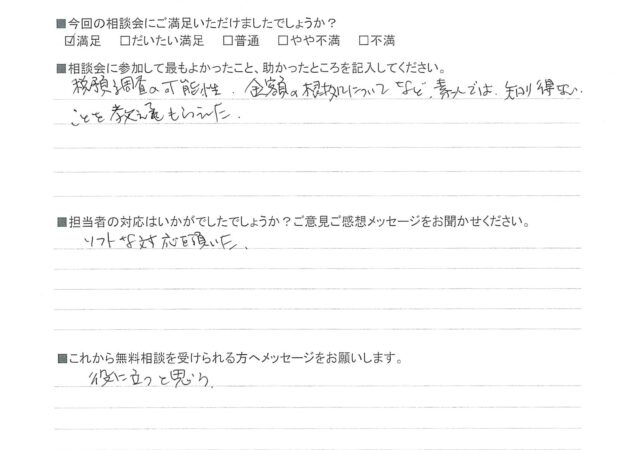 ■今回の相談会にご満足いただけましたでしょうか？
☑満足 □だいたい満足 □普通 □やや不満 □不満
■相談会に参加して最もよかったこと、助かったところを記入してください。
税務調査の可能性、金額の根拠について など、素人では、知り得ない
ことを教えてもらえた。
■担当者の対応はいかがでしたでしょうか？ご意見ご感想メッセージをお聞かせください。
ソフトな対応を頂いた。
■これから無料相談を受けられる方へメッセージをお願いします。
役に立つと思う。